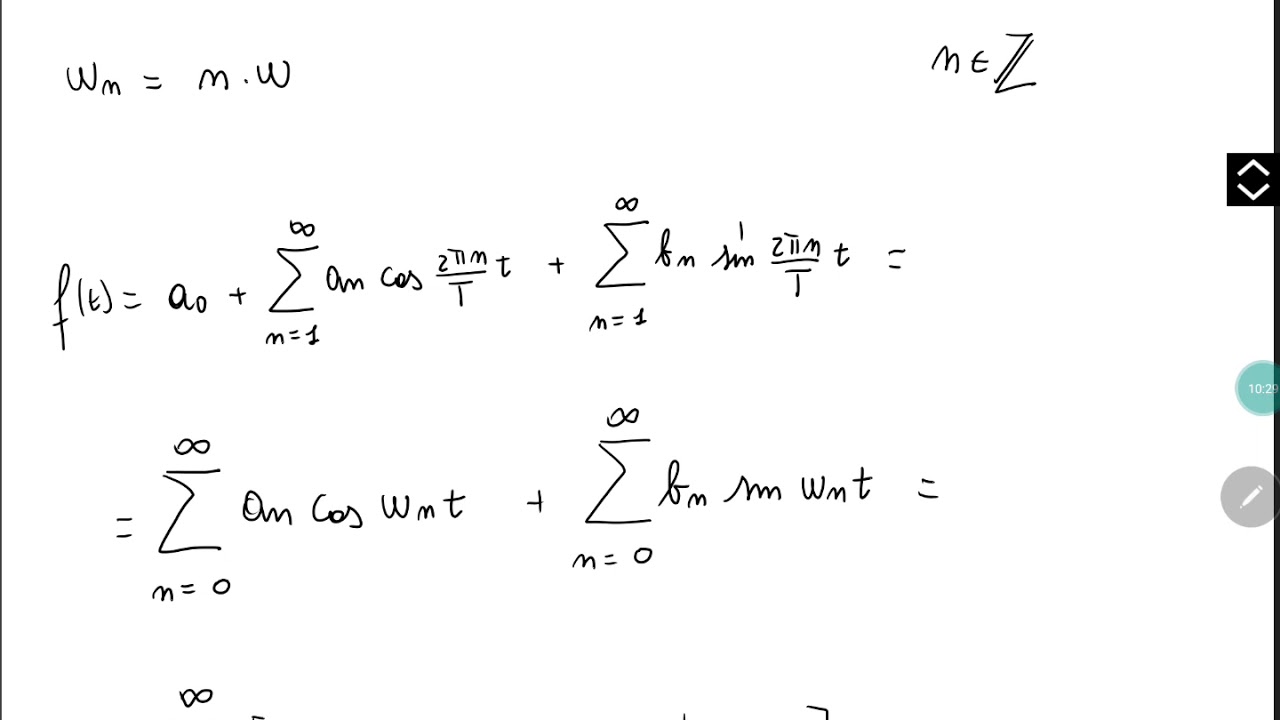 ωₙ = n·ω n ∈ ℤ
f(t) = a₀ + ∑_{n=1}^{∞} aₙ cos (2πn/T) t + ∑_{n=1}^{∞} bₙ sin (2πn/T) t =
= ∑_{n=0}^{∞} aₙ cos ωₙt + ∑_{n=0}^{∞} bₙ sin ωₙt =
∞
10:29